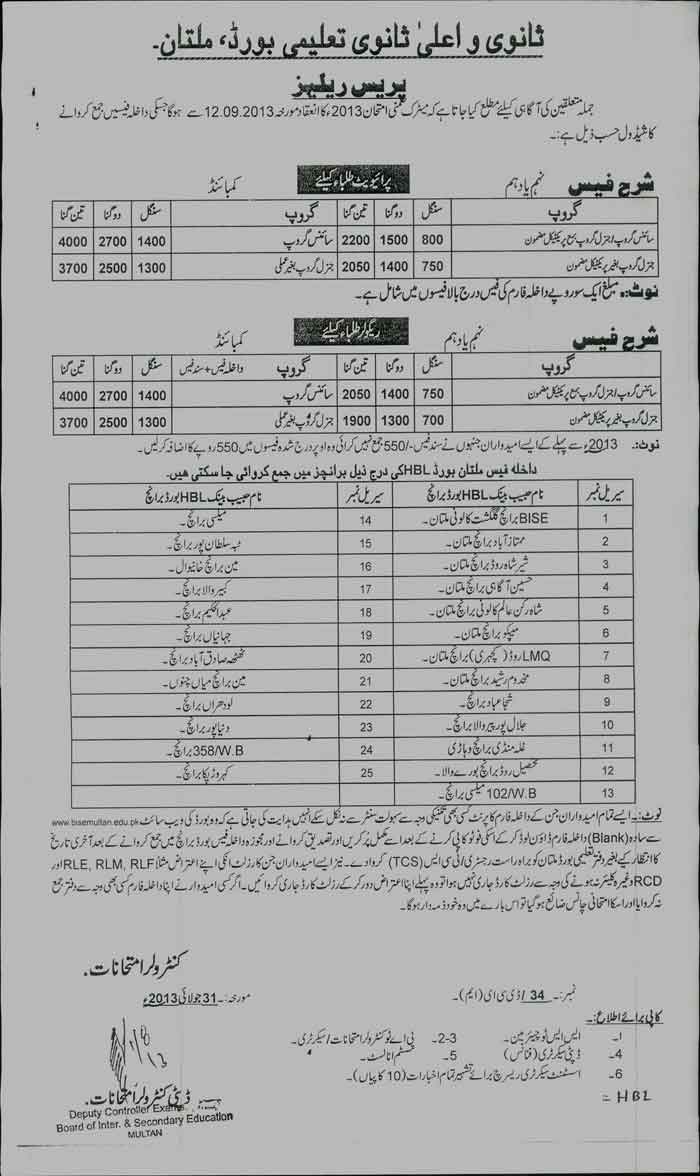 ثانوی و اعلیٰ ثانوی تعلیمی بورڈ، ملتان۔
پریس ریلیز
جملہ متعلقین کی آگاہی کیلئے مطلع کیا جاتا ہے کہ میٹرک ضمنی امتحان 2013ء کا انعقاد مورخہ 12.09.2013 سے ہوگا جسکی داخلہ فیسیں جمع کروانے
کا شیڈول حسب ذیل ہے:۔
شرح فیس نہم یا دہم پرائیویٹ طلباء کیلئے کمبائنڈ
گروپ سنگل دوگنا تین گنا گروپ سنگل دوگنا تین گنا
سائنس گروپ/جنرل گروپ بمع پریکٹیکل مضمون 800 1500 2200 سائنس گروپ 1400 2700 4000
جنرل گروپ بغیر پریکٹیکل مضمون 750 1400 2050 جنرل گروپ بغیر عملی 1300 2500 3700
نوٹ:۔ مبلغ ایک سو روپے داخلہ فارم کی فیس درج بالا فیسوں میں شامل ہے۔
شرح فیس نہم یا دہم ریگولر طلباء کیلئے کمبائنڈ
گروپ سنگل دوگنا تین گنا گروپ داخلہ فیس+سند فیس سنگل دوگنا تین گنا
سائنس گروپ/جنرل گروپ بمع پریکٹیکل مضمون 750 1400 2050 سائنس گروپ 1400 2700 4000
جنرل گروپ بغیر پریکٹیکل مضمون 700 1300 1900 جنرل گروپ بغیر عملی 1300 2500 3700
نوٹ:۔ 2013ء سے پہلے کے ایسے امیدواران جنہوں نے سند فیس -/550 جمع نہیں کرائی وہ اوپر درج شدہ فیسوں میں 550 روپے کا اضافہ کرلیں۔
داخلہ فیس ملتان بورڈ HBL کی درج ذیل برانچز میں جمع کروائی جا سکتی ھیں۔
سیریل نمبر نام حبیب بینک HBL بورڈ برانچ سیریل نمبر نام حبیب بینک HBL بورڈ برانچ
1 BISE برانچ گلگشت کالونی ملتان۔ 14 میلسی برانچ۔
2 ممتاز آباد برانچ ملتان۔ 15 ٹبہ سلطان پور برانچ۔
3 شیر شاہ روڈ برانچ ملتان۔ 16 مین برانچ خانیوال۔
4 حسین آگاہی برانچ ملتان۔ 17 کبیر والا برانچ۔
5 شاہ رکن عالم کالونی برانچ ملتان۔ 18 عبدالحکیم برانچ۔
6 میپکو برانچ ملتان۔ 19 جہانیاں برانچ۔
7 LMQ روڈ (کچہری) برانچ ملتان۔ 20 ٹھٹھہ صادق آباد برانچ۔
8 مخدوم رشید برانچ ملتان۔ 21 مین برانچ میاں چنوں۔
9 شجاعباد برانچ 22 لودھراں برانچ۔
10 جلال پور پیر والا برانچ 23 دنیا پور برانچ۔
11 غلہ منڈی برانچ وہاڑی 24 358/W.B برانچ۔
12 تحصیل روڈ برانچ بورے والا۔ 25 کہروڑ پکا برانچ۔
13 102/W.B میلسی برانچ
نوٹ:۔ ایسے تمام امیدواران جن کے داخلہ فارم کا پرنٹ کسی بھی تکنیکی وجہ سے سہولت سنٹر سے نہ نکل سکے انہیں ہدایت کی جاتی ہے کہ وہ بورڈ کی ویب سائٹ www.bisemultan.edu.pk
سے سادہ (Blank) داخلہ فارم ڈاؤن لوڈ کر کے اسکی فوٹو کاپی کرنے کے بعد اسے مکمل پُر کریں اور تصدیق کروانے اور مجوزہ داخلہ فیس بورڈ برانچ میں جمع کروانے کے بعد آخری تاریخ
کا انتظار کیے بغیر دفتر تعلیمی بورڈ ملتان کو براہ راست رجسٹری/ٹی سی ایس (TCS) کروادے۔ نیز ایسے امیدواران جن کا رزلٹ انکی اپنے اعتراض مثلاً RLE, RLM, RLF اور
RCD وغیرہ کلیئر نہ ہونے کی وجہ سے رزلٹ کارڈ جاری نہیں ہوا تو وہ پہلے اپنا اعتراض دور کر کے رزلٹ کارڈ جاری کروائیں۔ اگر کسی امیدوار نے اپنا داخلہ فارم کسی بھی وجہ سے دفتر جمع
نہ کروایا اور اسکا امتحانی چانس ضائع ہو گیا تو اس بارے میں وہ خود ذمہ دار ہوگا۔
کنٹرولر امتحانات۔
نمبر:۔ 34/ڈی سی ای (ایم)۔ مورخہ:۔ 31 جولائی 2013ء
کاپی برائے اطلاع:۔
1۔ ایس ایس ٹو چیئرمین۔ 2-3 پی اے ٹو کنٹرولر امتحانات/سیکرٹری۔
4۔ ڈپٹی سیکرٹری (فنانس) 5۔ سسٹم انالسٹ۔
6۔ اسسٹنٹ سیکرٹری ریسرچ برائے تشہیر تمام اخبارات (10 کاپیاں)۔
= HBL
ڈپٹی کنٹرولر امتحانات۔
Deputy Controller Exams.
Board of Inter. & Secondary Education
MULTAN